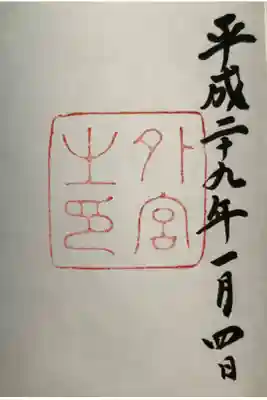 平成二十九年一月四日
外宮
之印